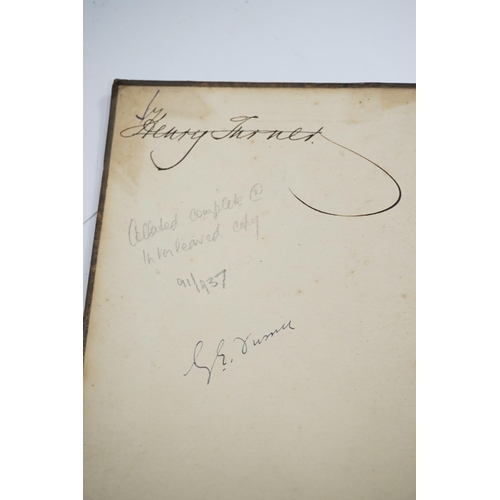 Henry Turner.
Collated complete @
interleaved copy
91/937
G. E. Turner